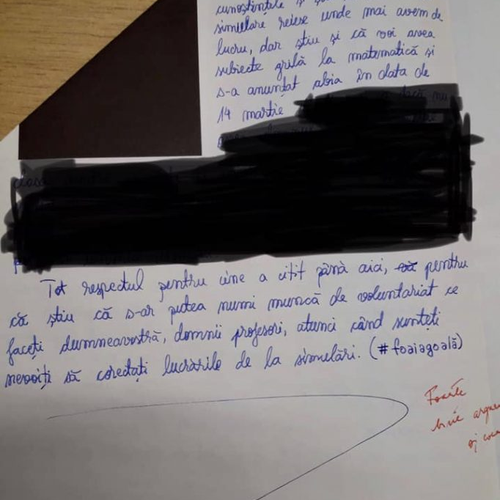 cunoștințele și
simulare reiese unde mai avem de
lucru, dar știu și că voi avea
subiecte grilă la matematică și
s-a anunțat abia în data de
14 martie
Tot respectul pentru cine a citit până aici, pentru
că știu că s-ar putea numi muncă de voluntariat ce
faceți dumneavostră, domnii profesori, atunci când sunteți
nevoiți să corectați lucrările de la simulări. (#foaiagoală)
Foarte
bine
și